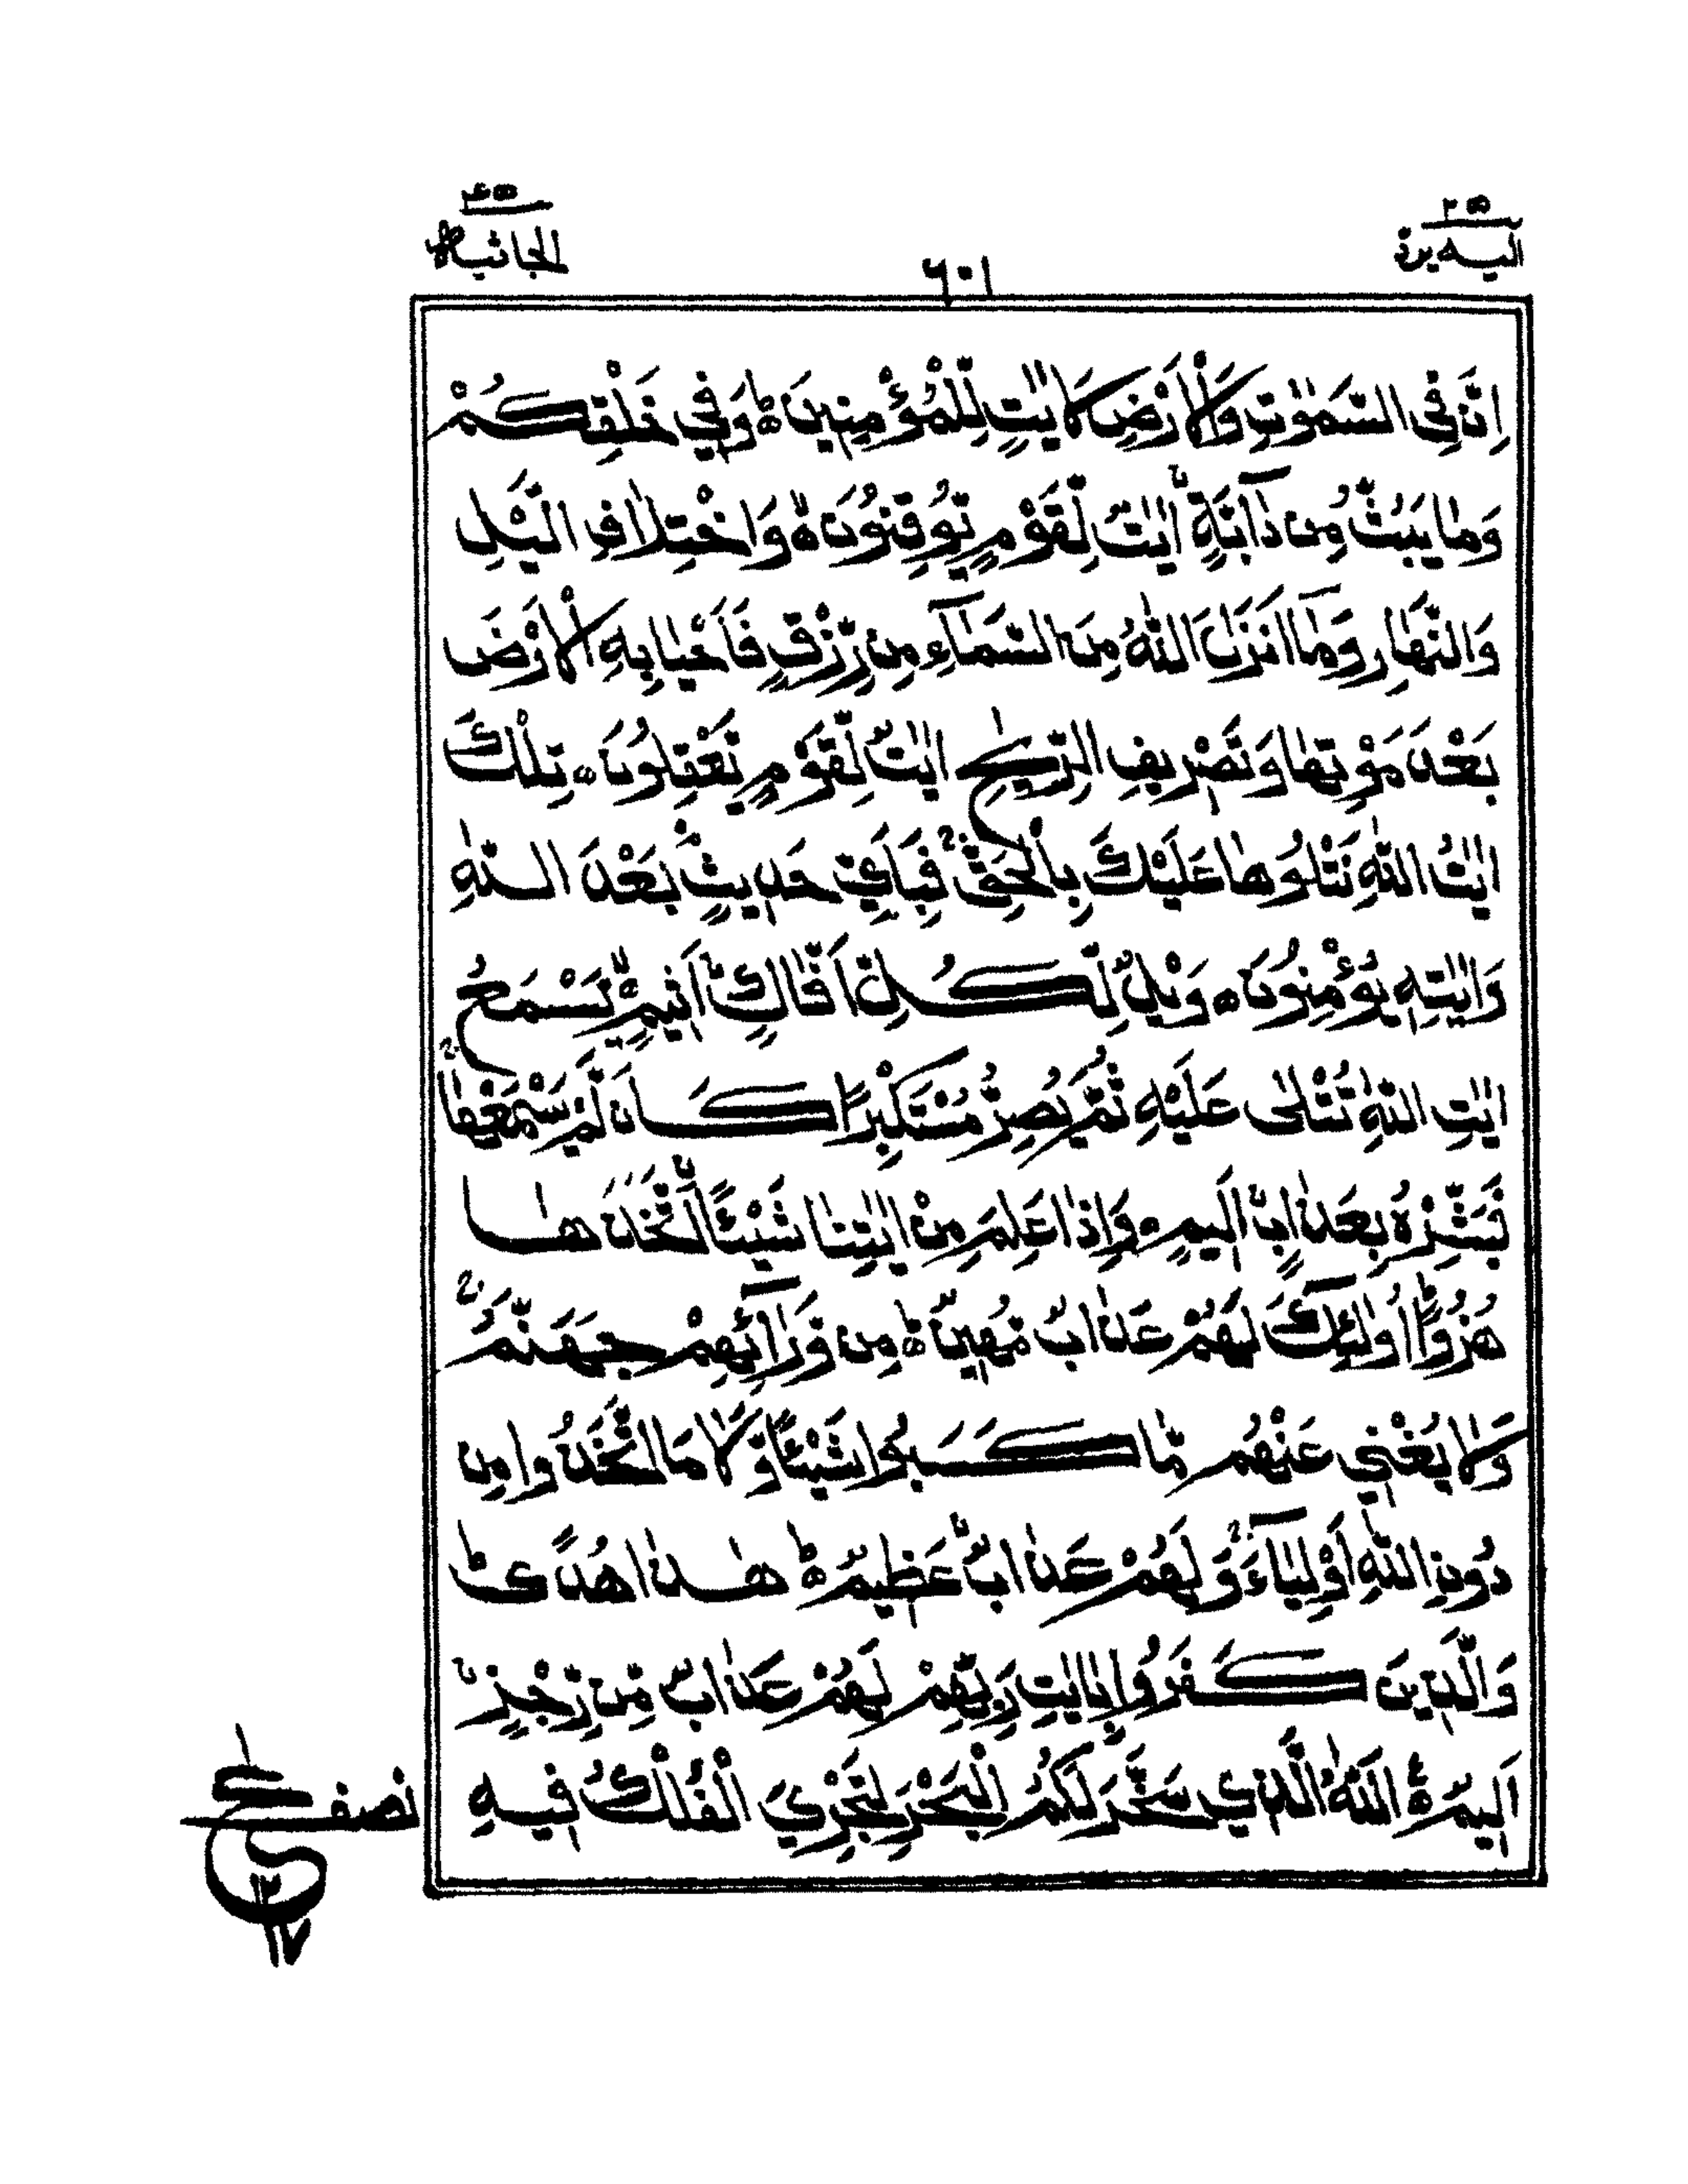 اليه يرد ٢٥
٦٠١
الجاثية ٤٥
اِنَّ فِي السَّمٰوٰتِ وَالْاَرْضِ لَاٰيٰتٍ لِّلْمُؤْمِنِيْنَ ؕ وَفِيْ خَلْقِكُمْ
وَمَا يَبُثُّ مِنْ دَآبَّةٍ اٰيٰتٌ لِّقَوْمٍ يُّوْقِنُوْنَ ۙ وَاخْتِلَافِ الَّيْلِ
وَالنَّهَارِ وَمَاۤ اَنْزَلَ اللّٰهُ مِنَ السَّمَآءِ مِنْ رِّزْقٍ فَاَحْيَا بِهِ الْاَرْضَ
بَعْدَ مَوْتِهَا وَتَصْرِيْفِ الرِّيٰحِ اٰيٰتٌ لِّقَوْمٍ يَّعْقِلُوْنَ ہ تِلْكَ
اٰيٰتُ اللّٰهِ نَتْلُوْهَا عَلَيْكَ بِالْحَقِّ ۚ فَبِاَيِّ حَدِيْثٍۢ بَعْدَ اللّٰهِ
وَاٰيٰتِهٖ يُؤْمِنُوْنَ ہ وَيْلٌ لِّكُلِّ اَفَّاكٍ اَثِيْمٍ ۙ يَّسْمَعُ
اٰيٰتِ اللّٰهِ تُتْلٰى عَلَيْهِ ثُمَّ يُصِرُّ مُسْتَكْبِرًا كَاَنْ لَّمْ يَسْمَعْهَا ۚ
فَبَشِّرْهُ بِعَذَابٍ اَلِيْمٍ ہ وَاِذَا عَلِمَ مِنْ اٰيٰتِنَا شَيْئًا اتَّخَذَهَا
هُزُوًا ؕ اُولٰٓئِكَ لَهُمْ عَذَابٌ مُّهِيْنٌ ؕ مِنْ وَّرَآئِهِمْ جَهَنَّمُ ۚ
وَلَا يُغْنِيْ عَنْهُمْ مَّا كَسَبُوْا شَيْئًا وَّلَا مَا اتَّخَذُوْا مِنْ
دُوْنِ اللّٰهِ اَوْلِيَآءَ ۚ وَلَهُمْ عَذَابٌ عَظِيْمٌ ؕ هٰذَا هُدًى ؕ
وَالَّذِيْنَ كَفَرُوْا بِاٰيٰتِ رَبِّهِمْ لَهُمْ عَذَابٌ مِّنْ رِّجْزٍ
اَلِيْمٌ ۧ اَللّٰهُ الَّذِيْ سَخَّرَ لَكُمُ الْبَحْرَ لِتَجْرِيَ الْفُلْكُ فِيْهِ
نصف
ع
١٢
١٧